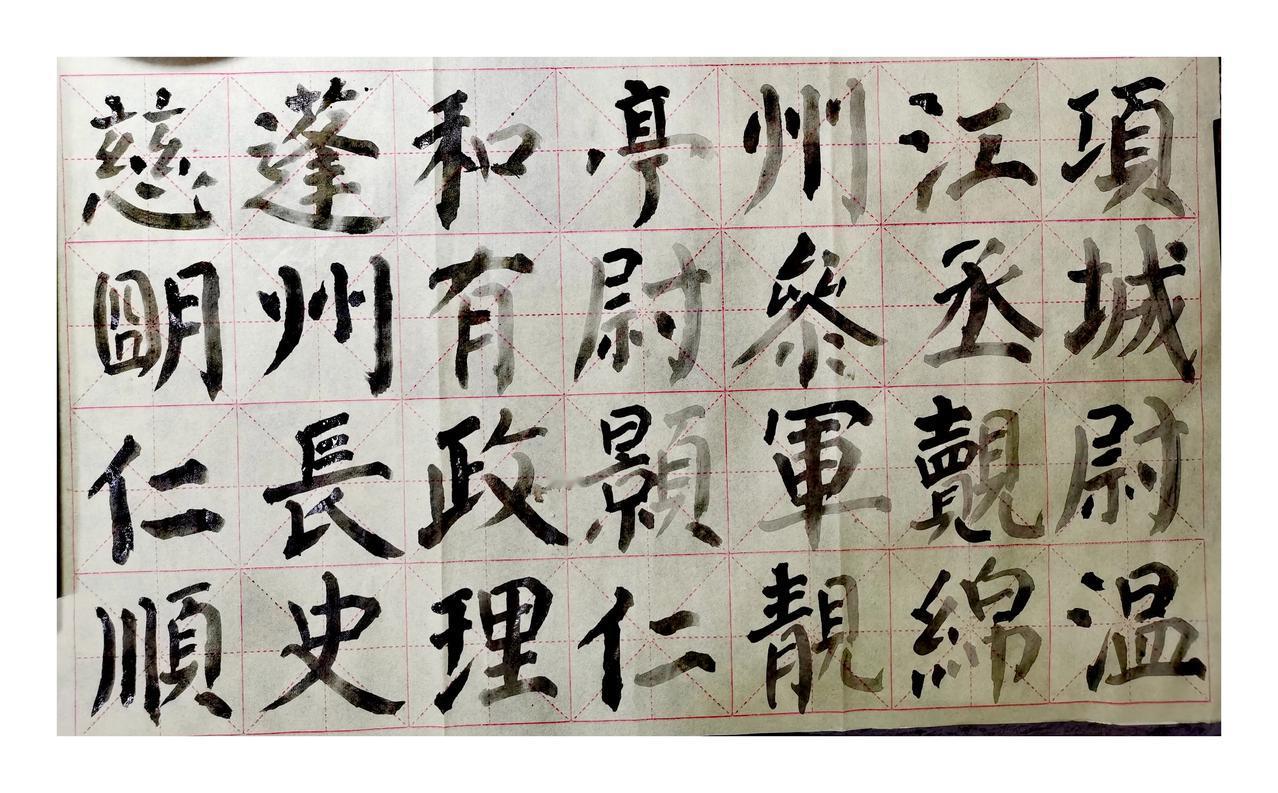 項城尉溫
江丞覿綿
州參軍靚
亭尉顥仁
和有政理
蓬州長史
慈明仁順